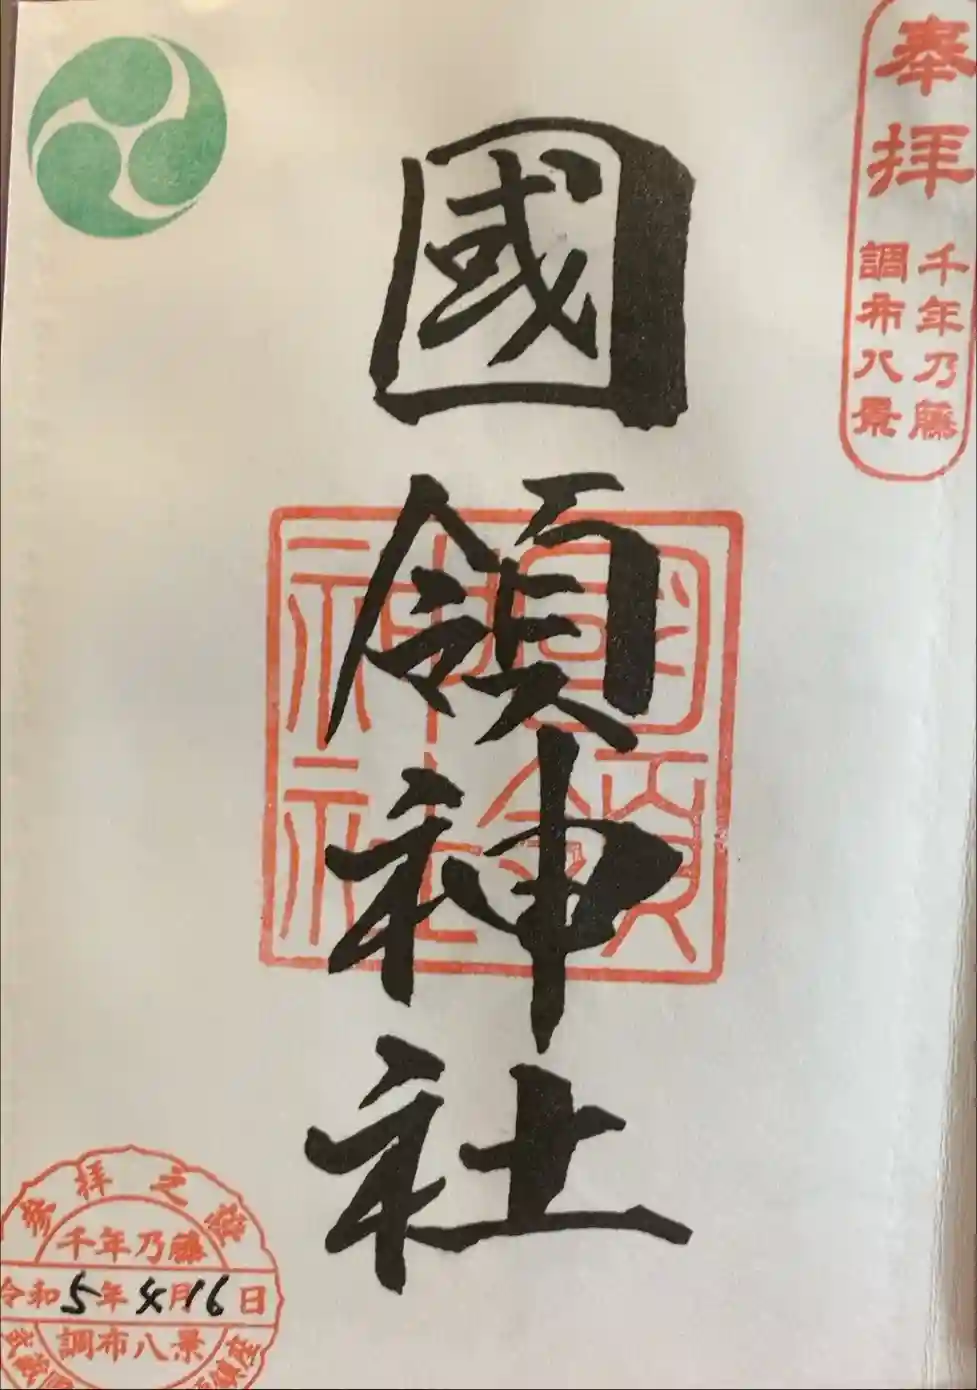 奉拝
千年乃藤
調布八景
國領神社
國領神社
参拝之証
千年乃藤
令和5年4月16日
調布八景